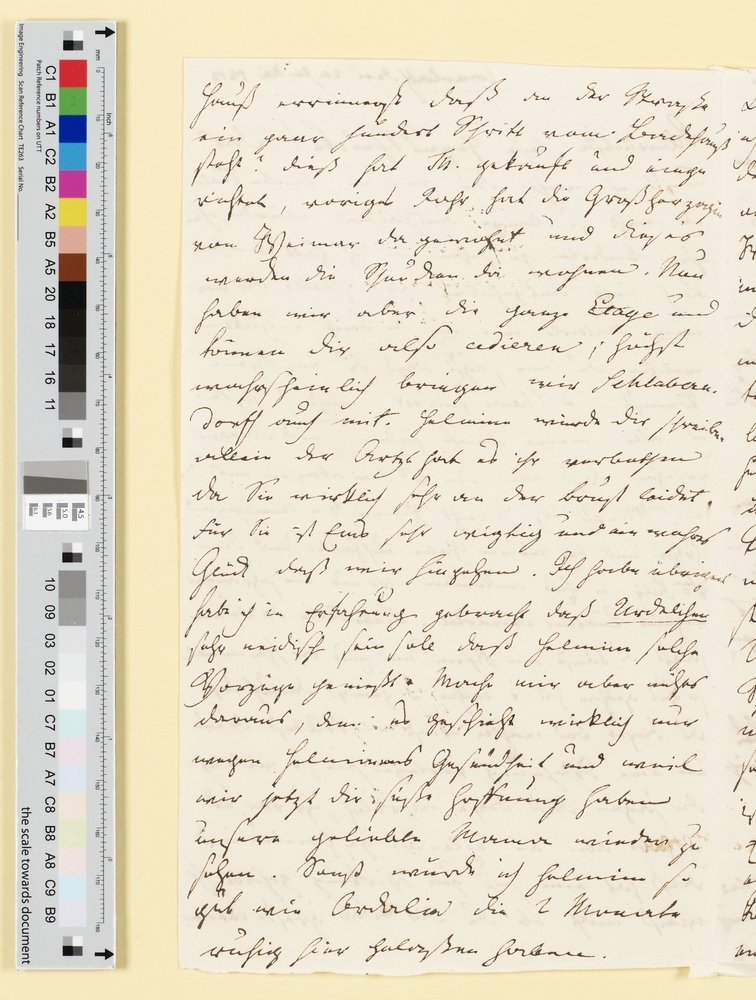 Hauß errinnerst daß an der Straße
ein paar hundert Schritt vom Landhauß
steht? dieß hat Th. gekauft und einge
richtet, voriges Jahr hat die Großherzogin
von Weimar da gewohnt und dieses
werden die da wohnen. Nun
haben wir aber die ganze Etage und
können dir also cedieren; höchst
wahrscheinlich bringen wir Schlabern.
dorff auch mit. Helmine würde dir schreiben
allein der Artzt hat es ihr verbothen
da Sie wirklich sehr an der Brust leidet.
Für Sie ist Ems sehr wigtig und ein wahres
Glück daß wir hingehen. Ich habe übrigens
habe ich in Erfahrung gebracht daß
sehr neidisch sein soll daß Helmine solche
Vorzüge genießt. Mache mir aber nichts
daraus, denn es geschieht wirklich nur
wegen Helminens Gesundheit und weil
wir jetzt die süße Hoffnung haben
unsere geliebte Mama wieder zu
sehen. Sonst würde ich Helmine so
gut wie Ordalia die 2 Monate
ruhig hier gelaßen haben.
C1 B1 A1 C2 B2 A2 B5 A5 20 18 17 16 11
10 09 03 02 01 C7 B7 A7 C8 B8 A8 C9 B9
the scale towards document
Image Engineering Scan Reference Chart TE263 Serial No.
Patch Reference numbers on UTT
mm
inch